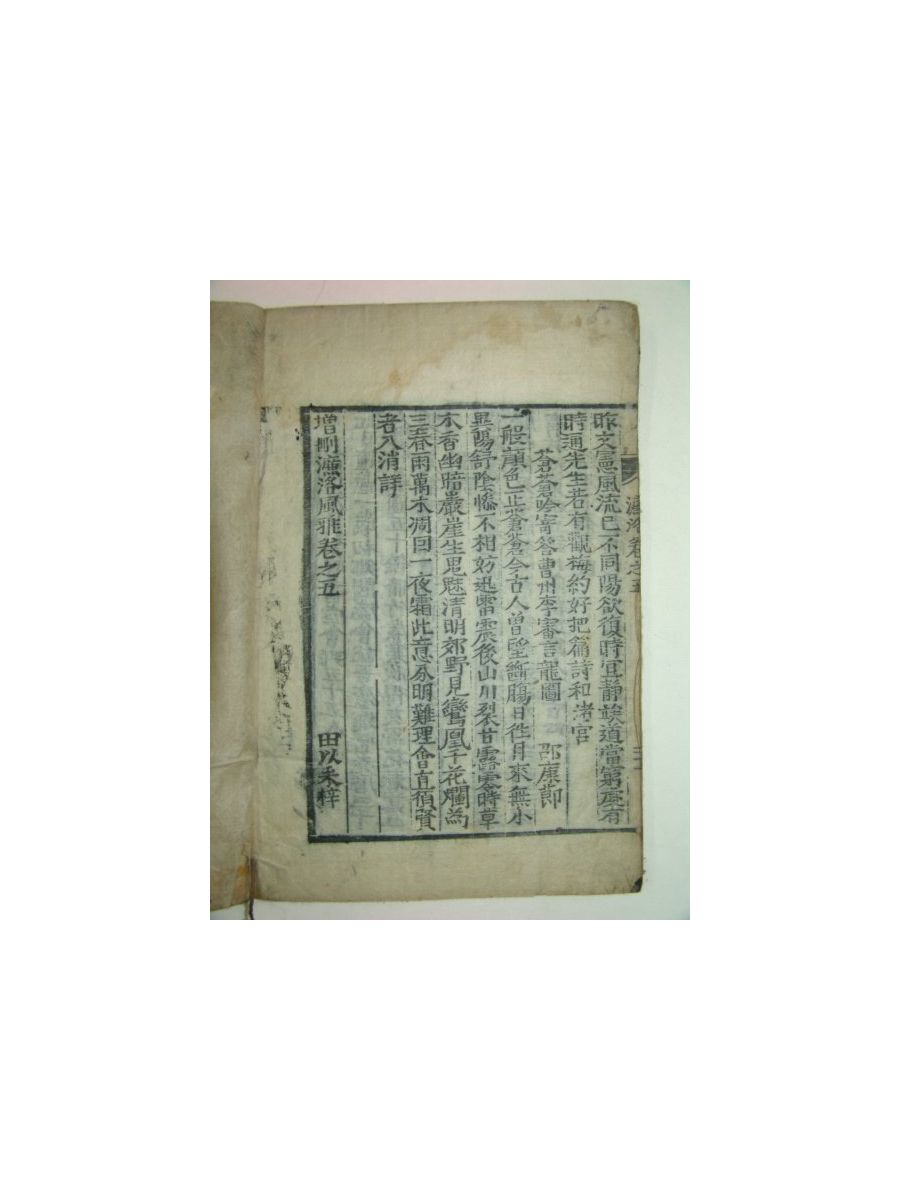 昨文憲風流已不同陽欲復時宜靜竢道當窮處有
時通先生若有觀梅約好把篇詩和渚宮
蒼蒼吟寄答曹州李審言龍圖 邵康節
一般顔色正蒼蒼今古人曾望斷腸日往月來無小
異陽舒陰慘不相妨迅雷震後山川裂甘露零時草
木香幽暗巖崖生鬼魅清明郊野見鸞凰千花爛爲
三春雨萬木凋因一夜霜此意分明難理會直須賢
者入消詳
增刪濂洛風雅卷之五 田以采梓
濂洛卷之五